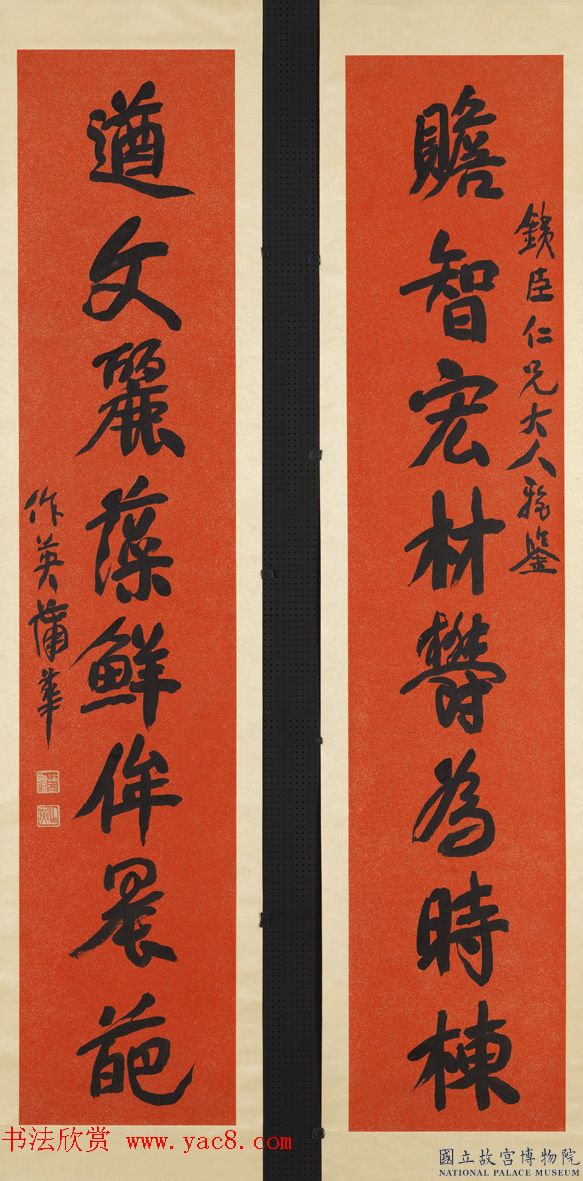 贍智宏材欝為時棟
鐵臣仁兄大人雅鑒
遒文麗藻鮮侔晨葩
作英蒲華
书法欣赏 www.yac8.com
國立故宮博物院
NATIONAL PALACE MUSEUM